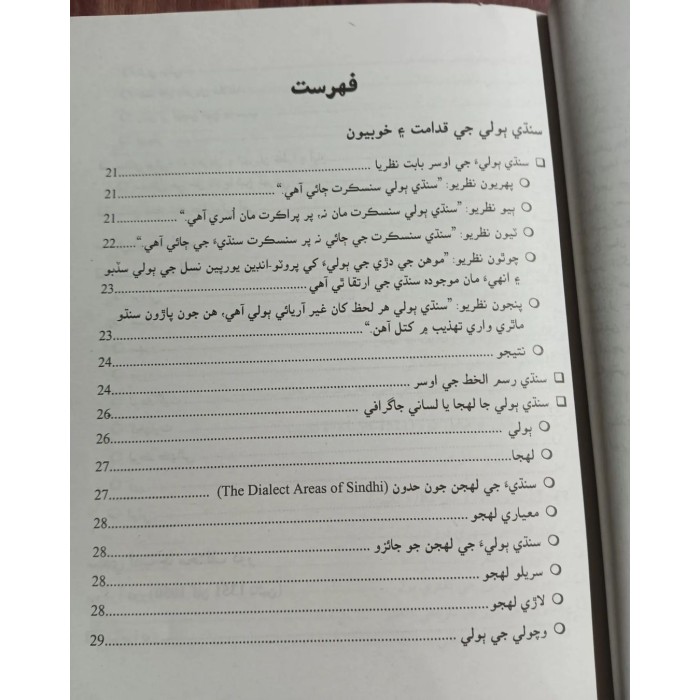 فهرست
سنڌي ٻولي جي قدامت ۽ خوبيون
❑ سنڌي ٻوليءَ جي اوسر بابت نظريا ........................................ 21
❍ پهريون نظريو: ”سنڌي ٻولي سنسڪرت ڄائي آهي.“ ........................ 21
❍ ٻيو نظريو: ”سنڌي ٻولي سنسڪرت مان نہ، پر پراڪرت مان اُسري آهي.“ ............ 21
❍ ٽيون نظريو: ”سنڌي سنسڪرت جي ڄائي نہ پر سنسڪرت سنڌيءَ جي ڄائي آهي.“ ...... 22
❍ چوٿون نظريو: ”موهن جي دڙي جي ٻوليءَ کي پروٽو-انڊين يورپين نسل جي ٻولي سڏبو
۽ انهيءَ مان موجوده سنڌي جي ارتقا ٿي آهي ........................ 23
❍ پنجون نظريو: ”سنڌي ٻولي هر لحظ کان غير آريائي ٻولي آهي، هن جون پاڙون سنڌو
ماٿري واري تهذيب ۾ کتل آهن.“ ........................ 23
❍ نتيجو ........................ 24
❑ سنڌي رسم الخط جي اوسر ........................ 24
❑ سنڌي ٻولي جا لهجا يا لساني جاگرافي ........................ 26
❍ ٻولي ........................ 26
❍ لهجا ........................ 27
❍ سنڌيءَ جي لهجن جون حدون (The Dialect Areas of Sindhi) ........................ 27
❍ معياري لهجو ........................ 28
❍ سنڌي ٻوليءَ جي لهجن جو جائزو ........................ 28
❍ سريلو لهجو ........................ 28
❍ لاڙي لهجو ........................ 28
❍ وچولي جي ٻولي ........................ 29